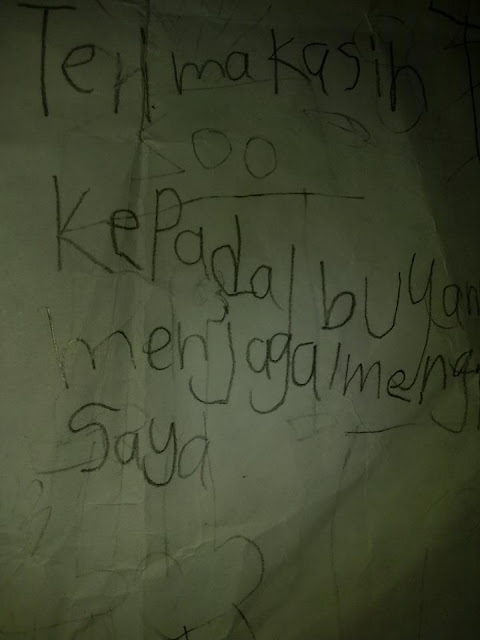 Terima kasih
500
Kepada Ibu yan
menjaga/meng
Saya